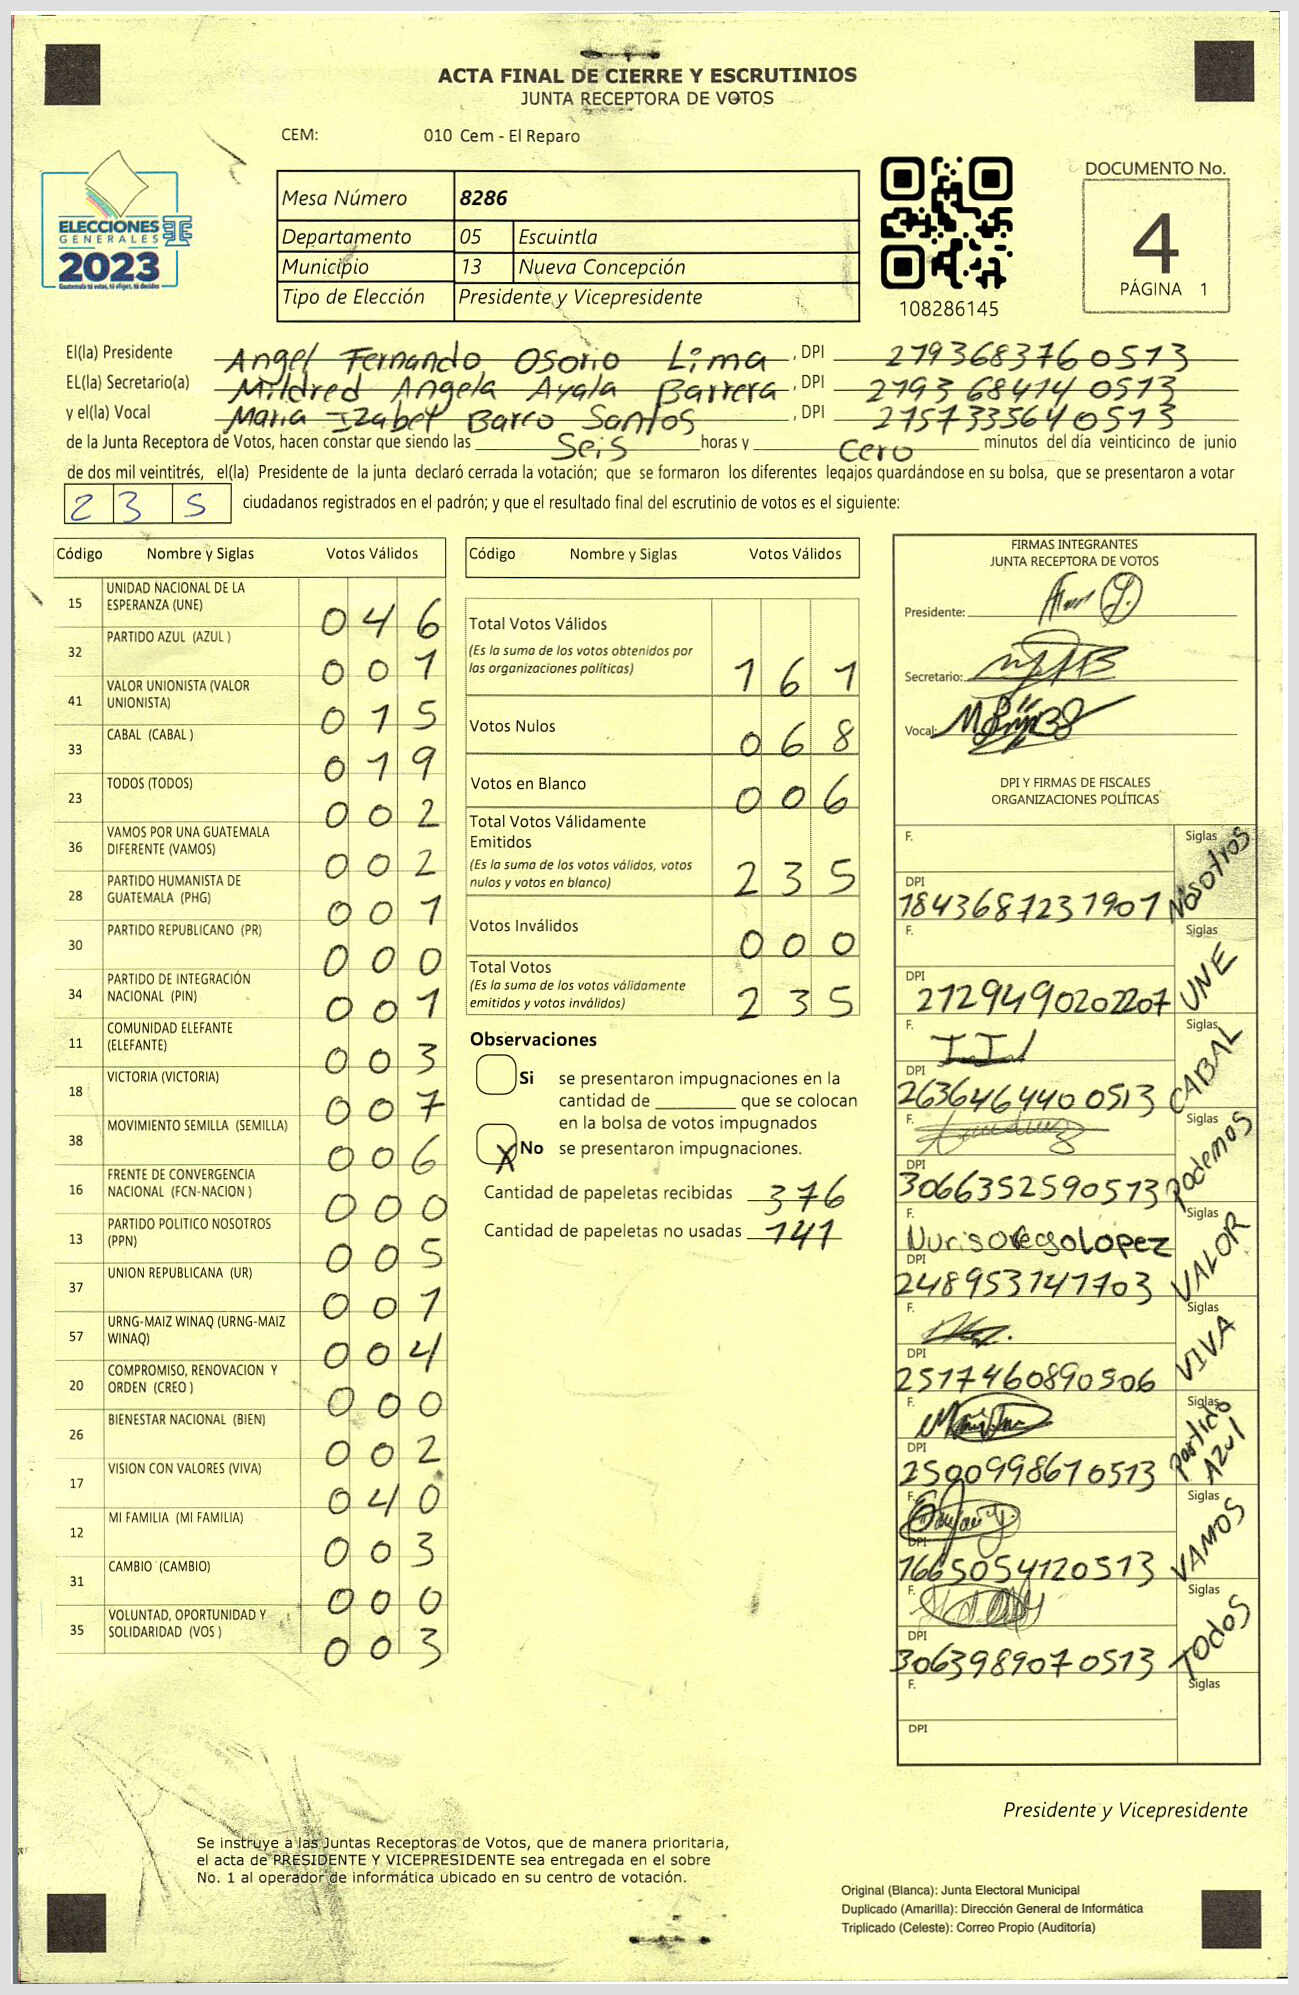 ACTA FINAL DE CIERRE Y ESCRUTINIOS
JUNTA RECEPTORA DE VOTOS
CEM: 010 Cem - El Reparo
ELECCIONES
GENERALES
2023
Guatemala tú votas, tú eliges, tú decides
Mesa Número 8286
Departamento 05 Escuintla
Municipio 13 Nueva Concepción
Tipo de Elección Presidente y Vicepresidente
108286145
DOCUMENTO No.
4
PÁGINA 1
El(la) Presidente Angel Fernando Osorio Lima , DPI 2793683760513
EL(la) Secretario(a) Mildred Angela Ayala Barrera , DPI 2793684140513
y el(la) Vocal Maria Izabel Barco Santos , DPI 2757335640513
de la Junta Receptora de Votos, hacen constar que siendo las Seis horas y Cero minutos del día veinticinco de junio
de dos mil veintitrés, el(la) Presidente de la junta declaró cerrada la votación; que se formaron los diferentes legajos guardándose en su bolsa, que se presentaron a votar
235 ciudadanos registrados en el padrón; y que el resultado final del escrutinio de votos es el siguiente:
Código Nombre y Siglas Votos Válidos
15 UNIDAD NACIONAL DE LA ESPERANZA (UNE) 046
32 PARTIDO AZUL (AZUL ) 001
41 VALOR UNIONISTA (VALOR UNIONISTA) 015
33 CABAL (CABAL ) 019
23 TODOS (TODOS) 002
36 VAMOS POR UNA GUATEMALA DIFERENTE (VAMOS) 002
28 PARTIDO HUMANISTA DE GUATEMALA (PHG) 001
30 PARTIDO REPUBLICANO (PR) 000
34 PARTIDO DE INTEGRACIÓN NACIONAL (PIN) 001
11 COMUNIDAD ELEFANTE (ELEFANTE) 003
18 VICTORIA (VICTORIA) 007
38 MOVIMIENTO SEMILLA (SEMILLA) 006
16 FRENTE DE CONVERGENCIA NACIONAL (FCN-NACION ) 000
13 PARTIDO POLITICO NOSOTROS (PPN) 005
37 UNION REPUBLICANA (UR) 001
57 URNG-MAIZ WINAQ (URNG-MAIZ WINAQ) 004
20 COMPROMISO, RENOVACION Y ORDEN (CREO ) 000
26 BIENESTAR NACIONAL (BIEN) 002
17 VISION CON VALORES (VIVA) 040
12 MI FAMILIA (MI FAMILIA) 003
31 CAMBIO (CAMBIO) 000
35 VOLUNTAD, OPORTUNIDAD Y SOLIDARIDAD (VOS ) 003
Código Nombre y Siglas Votos Válidos
Total Votos Válidos 161
(Es la suma de los votos obtenidos por
las organizaciones políticas)
Votos Nulos 068
Votos en Blanco 006
Total Votos Válidamente
Emitidos 235
(Es la suma de los votos válidos, votos
nulos y votos en blanco)
Votos Inválidos 000
Total Votos 235
(Es la suma de los votos válidamente
emitidos y votos inválidos)
Observaciones
Si se presentaron impugnaciones en la
cantidad de ________ que se colocan
en la bolsa de votos impugnados
X No se presentaron impugnaciones.
Cantidad de papeletas recibidas 376
Cantidad de papeletas no usadas 141
FIRMAS INTEGRANTES
JUNTA RECEPTORA DE VOTOS
Presidente:
Secretario:
Vocal:
DPI Y FIRMAS DE FISCALES
ORGANIZACIONES POLÍTICAS
F. Siglas Nosotros
DPI 1843687231901
F. Siglas UNE
DPI 2129490202207
F. Siglas CABAL
DPI 2636464400513
F. Siglas Podemos
DPI 3066352590513
F. Nuris Orego Lopez Siglas VALOR
DPI 2489537141703
F. Siglas VIVA
DPI 2517460890506
F. Siglas Partido Azul
DPI 2500998670513
F. Siglas VAMOS
DPI 1665054120513
F. Siglas TODOS
DPI 3063989070513
F. Siglas
DPI
Presidente y Vicepresidente
Se instruye a las Juntas Receptoras de Votos, que de manera prioritaria,
el acta de PRESIDENTE Y VICEPRESIDENTE sea entregada en el sobre
No. 1 al operador de informática ubicado en su centro de votación.
Original (Blanca): Junta Electoral Municipal
Duplicado (Amarilla): Dirección General de Informática
Triplicado (Celeste): Correo Propio (Auditoría)